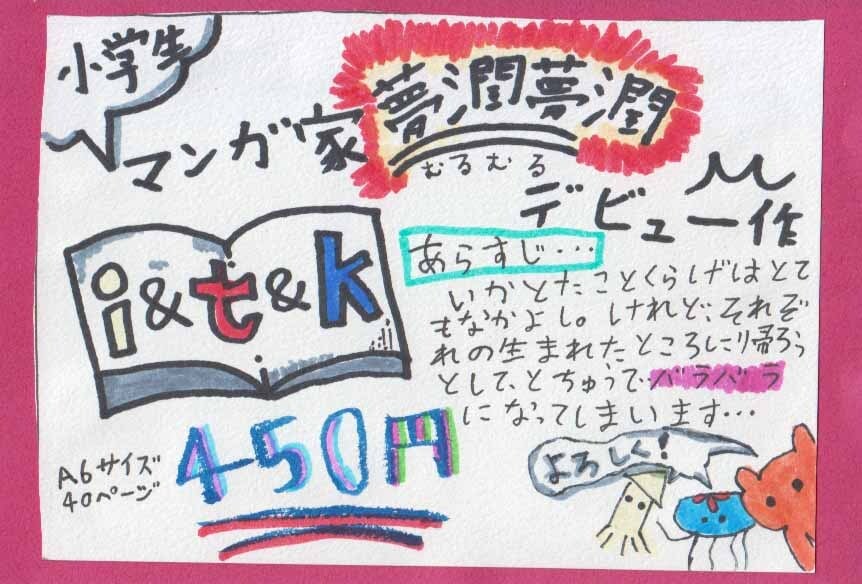 小学生
マンガ家 夢潤夢潤
むるむる
デビュー作
i&t&k
あらすじ…
いかとたことくらげはとて
もなかよし。けれど、それぞ
れの生まれたところに帰ろう
として、とちゅうでバラバラ
になってしまいます…
A6サイズ
40ページ
450円
よろしく!